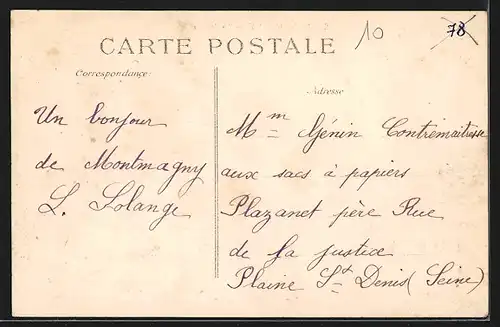 CARTE POSTALE
10
78
Correspondance
Adresse
Un bonjour
de Montmagny
L. Solange
Mm Génin Contremaitresse
aux sacs à papiers
Plazanet père Rue
de la justice
Plaine St Denis (Seine)